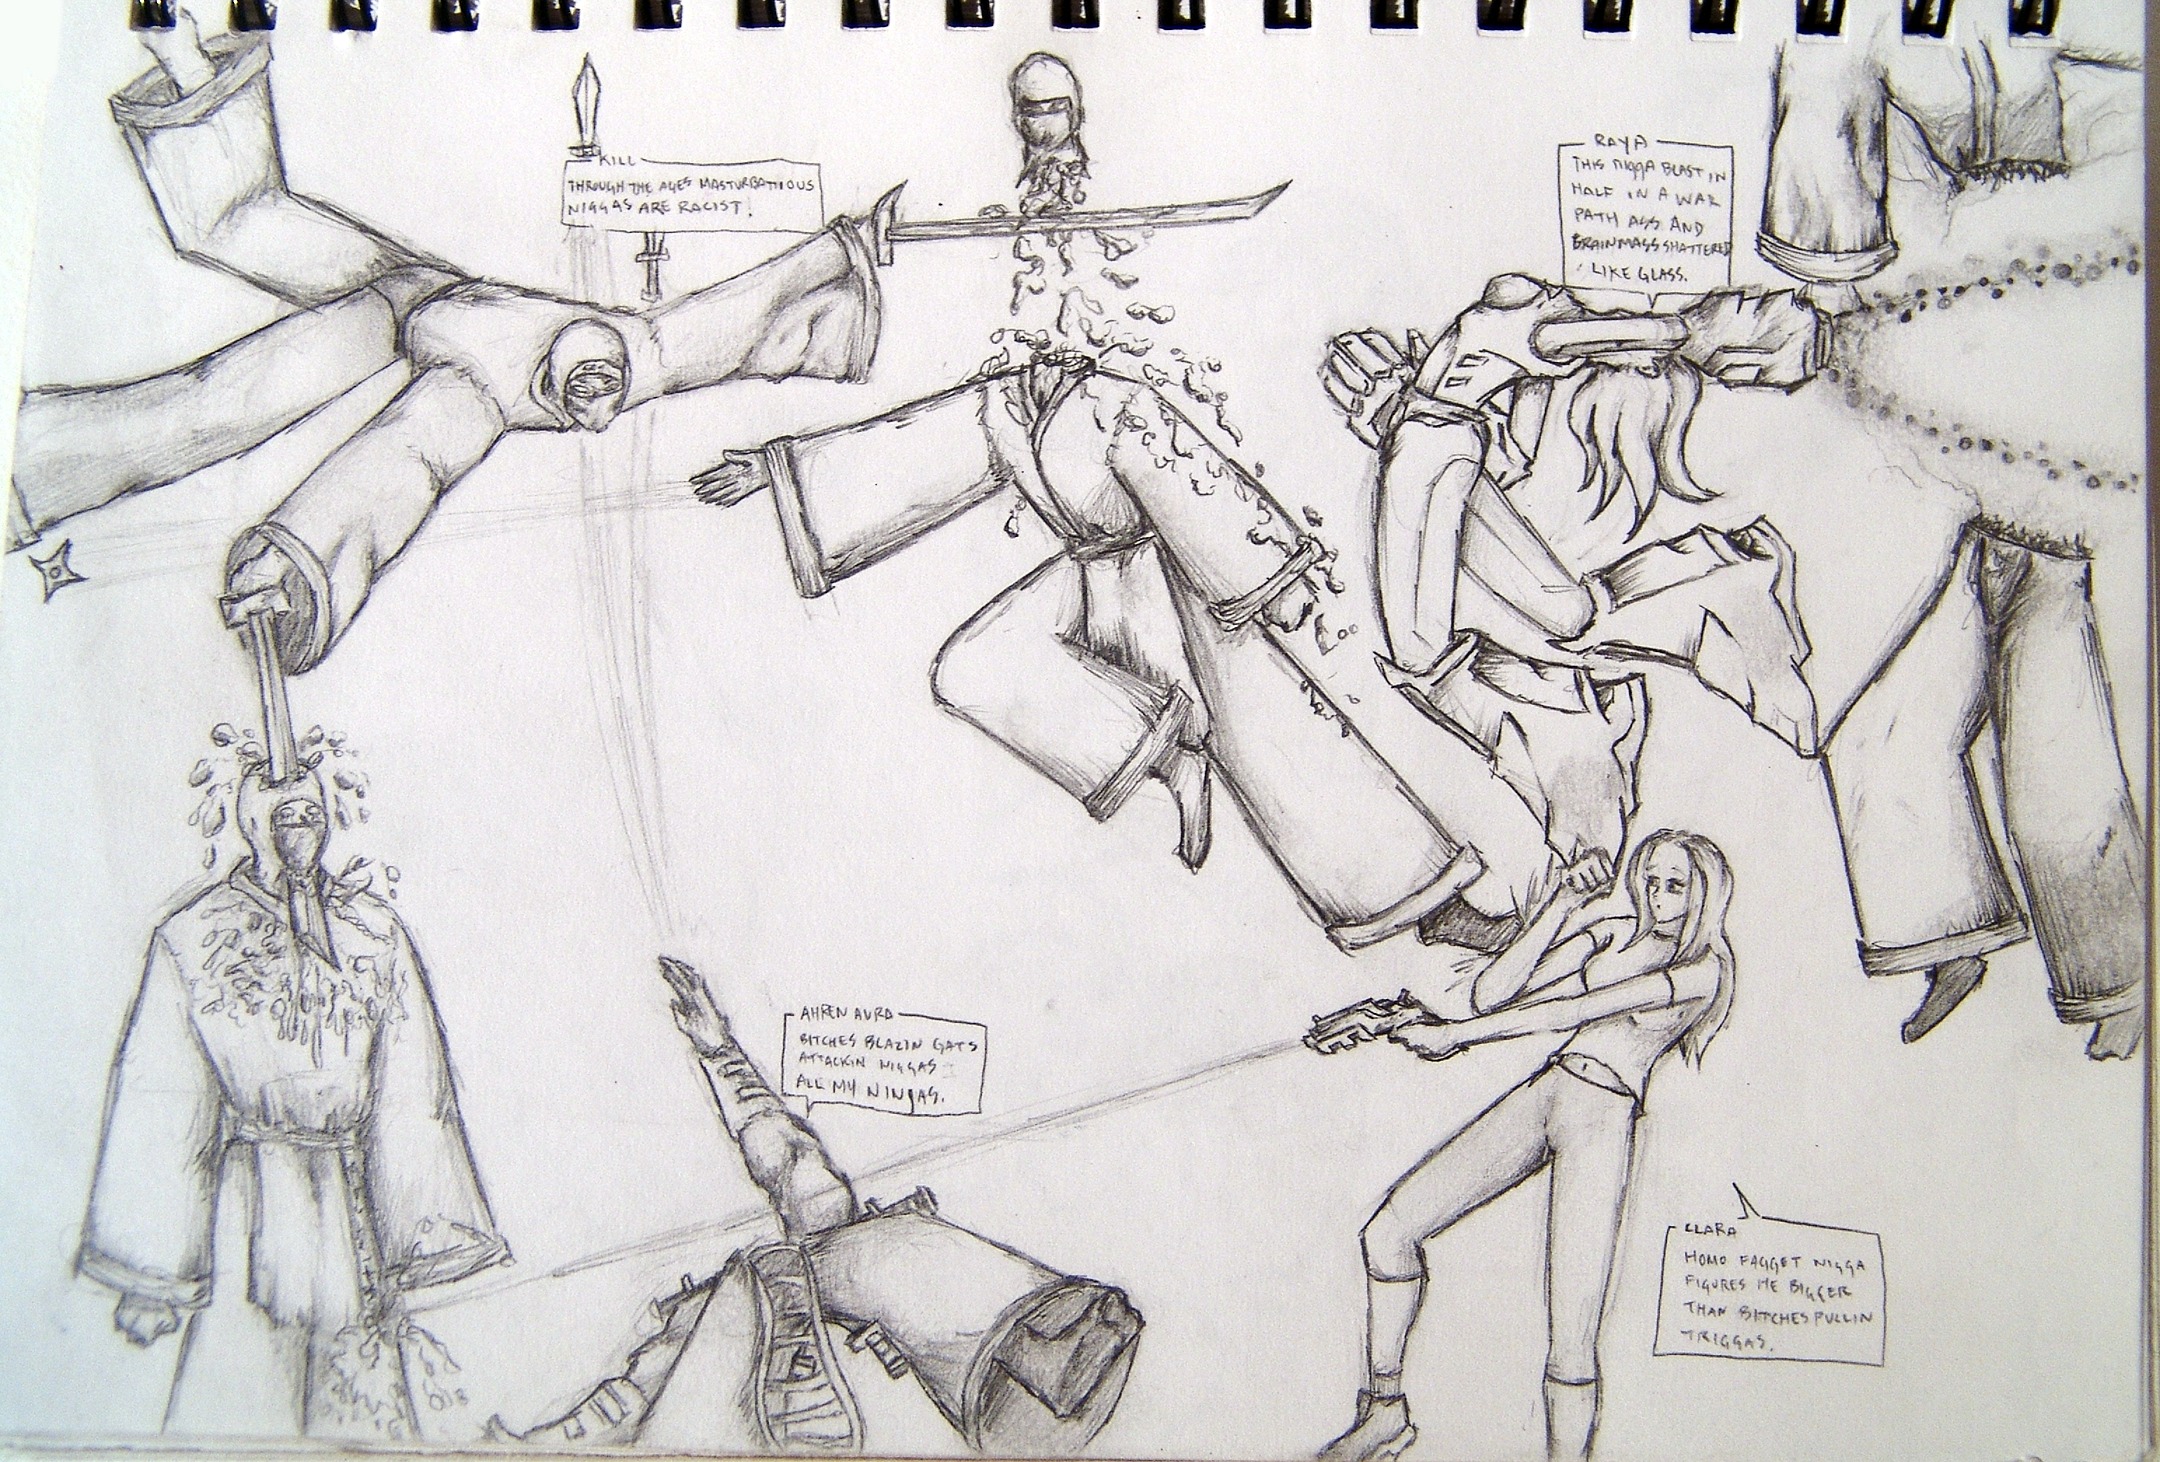 KILL
THROUGH THE AGES MASTURBATIOUS
NIGGAS ARE RACIST!
RAYA
THIS NIGGA BLAST IN
HALF IN A WAR
PATH ASS AND
BRAINMASS SHATTERED
LIKE GLASS.
AHREN AURA
BITCHES BLAZIN GATS
ATTACKIN NIGGAS
ALL MY NINJAS.
CLARA
HOMO FAGGET NIGGA
FIGURES HE BIGGER
THAN BITCHES PULLIN
TRIGGAS.